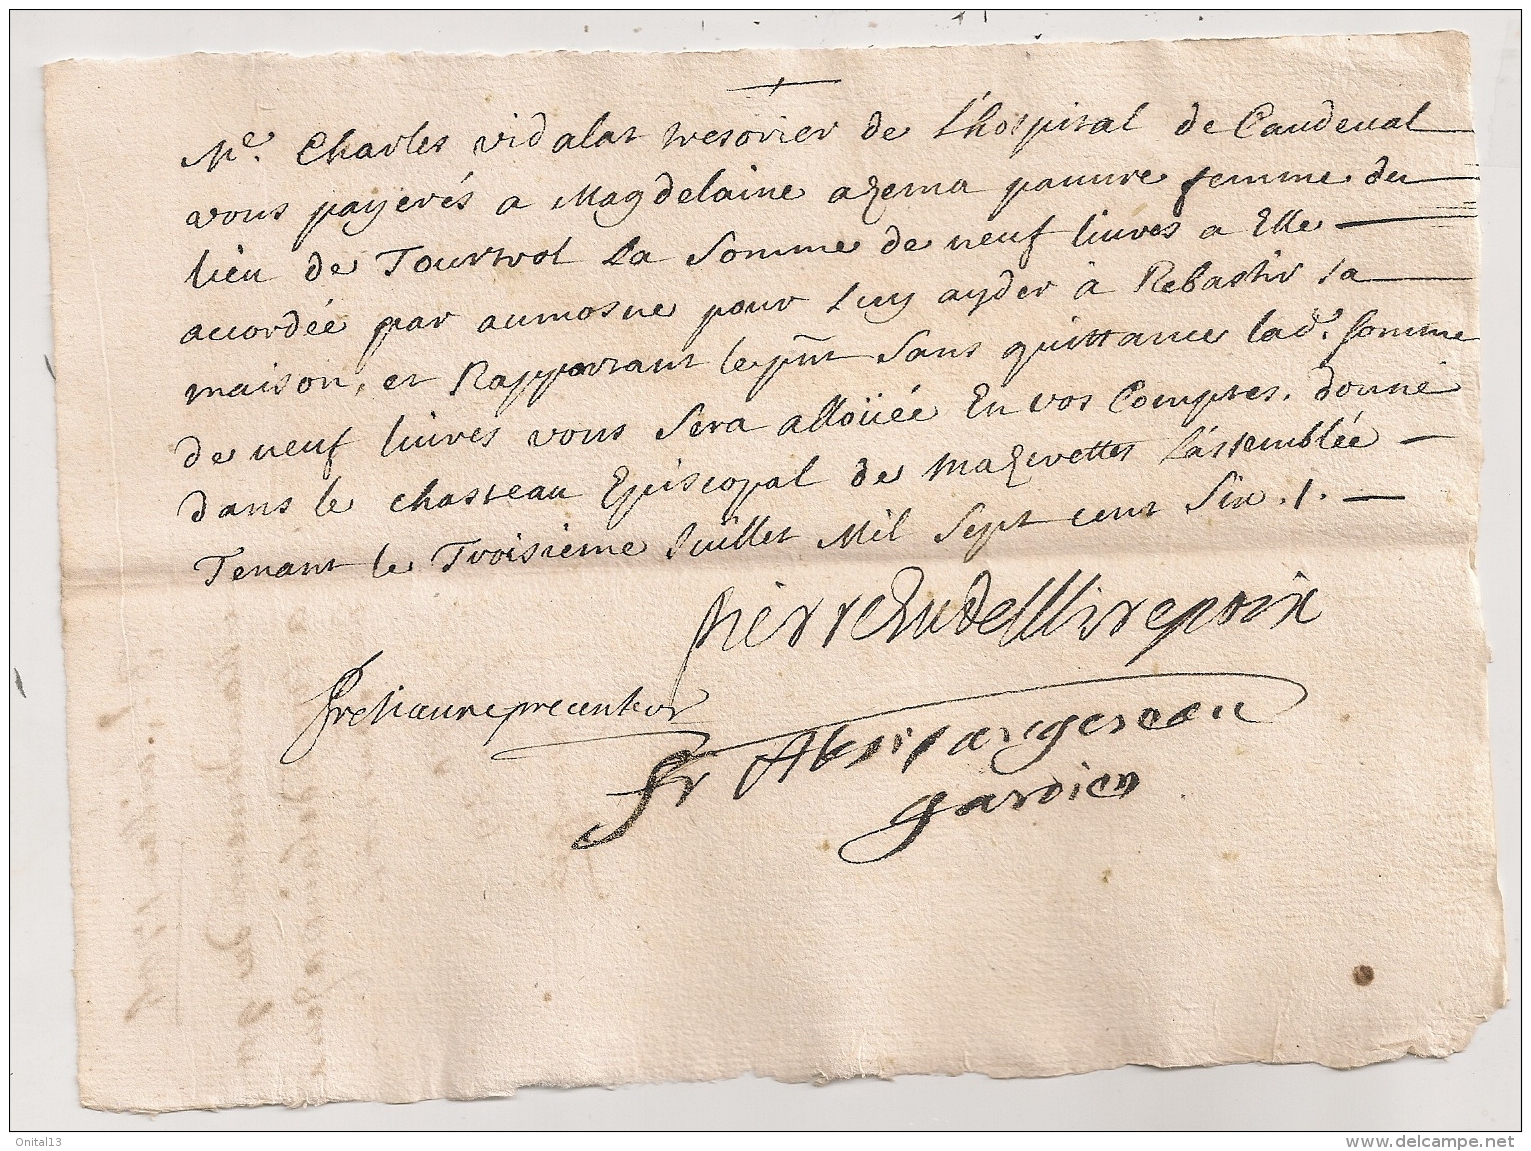 Me. Charles vidalat tresorier de L'hospital de Caudeual
vous payerés a Magdelaine azema pauure femme du
lieu de Tourtrol La Somme de neuf liures a Elle
accordée par aumosne pour Luy ayder à Rebastir sa
maison, et Rapportant le pnt Sans quittance lade. somme
de neuf liures vous Sera alloüée En vos Comptes. donné
dans le chasteau Episcopal de mazerettes L'assemblée
Tenant le Troisieme Juillet Mil Sept cent Six. /.
pierre Eu de Mirepoix
precenteur
fr
gardien
Onital13
www.delcampe.net